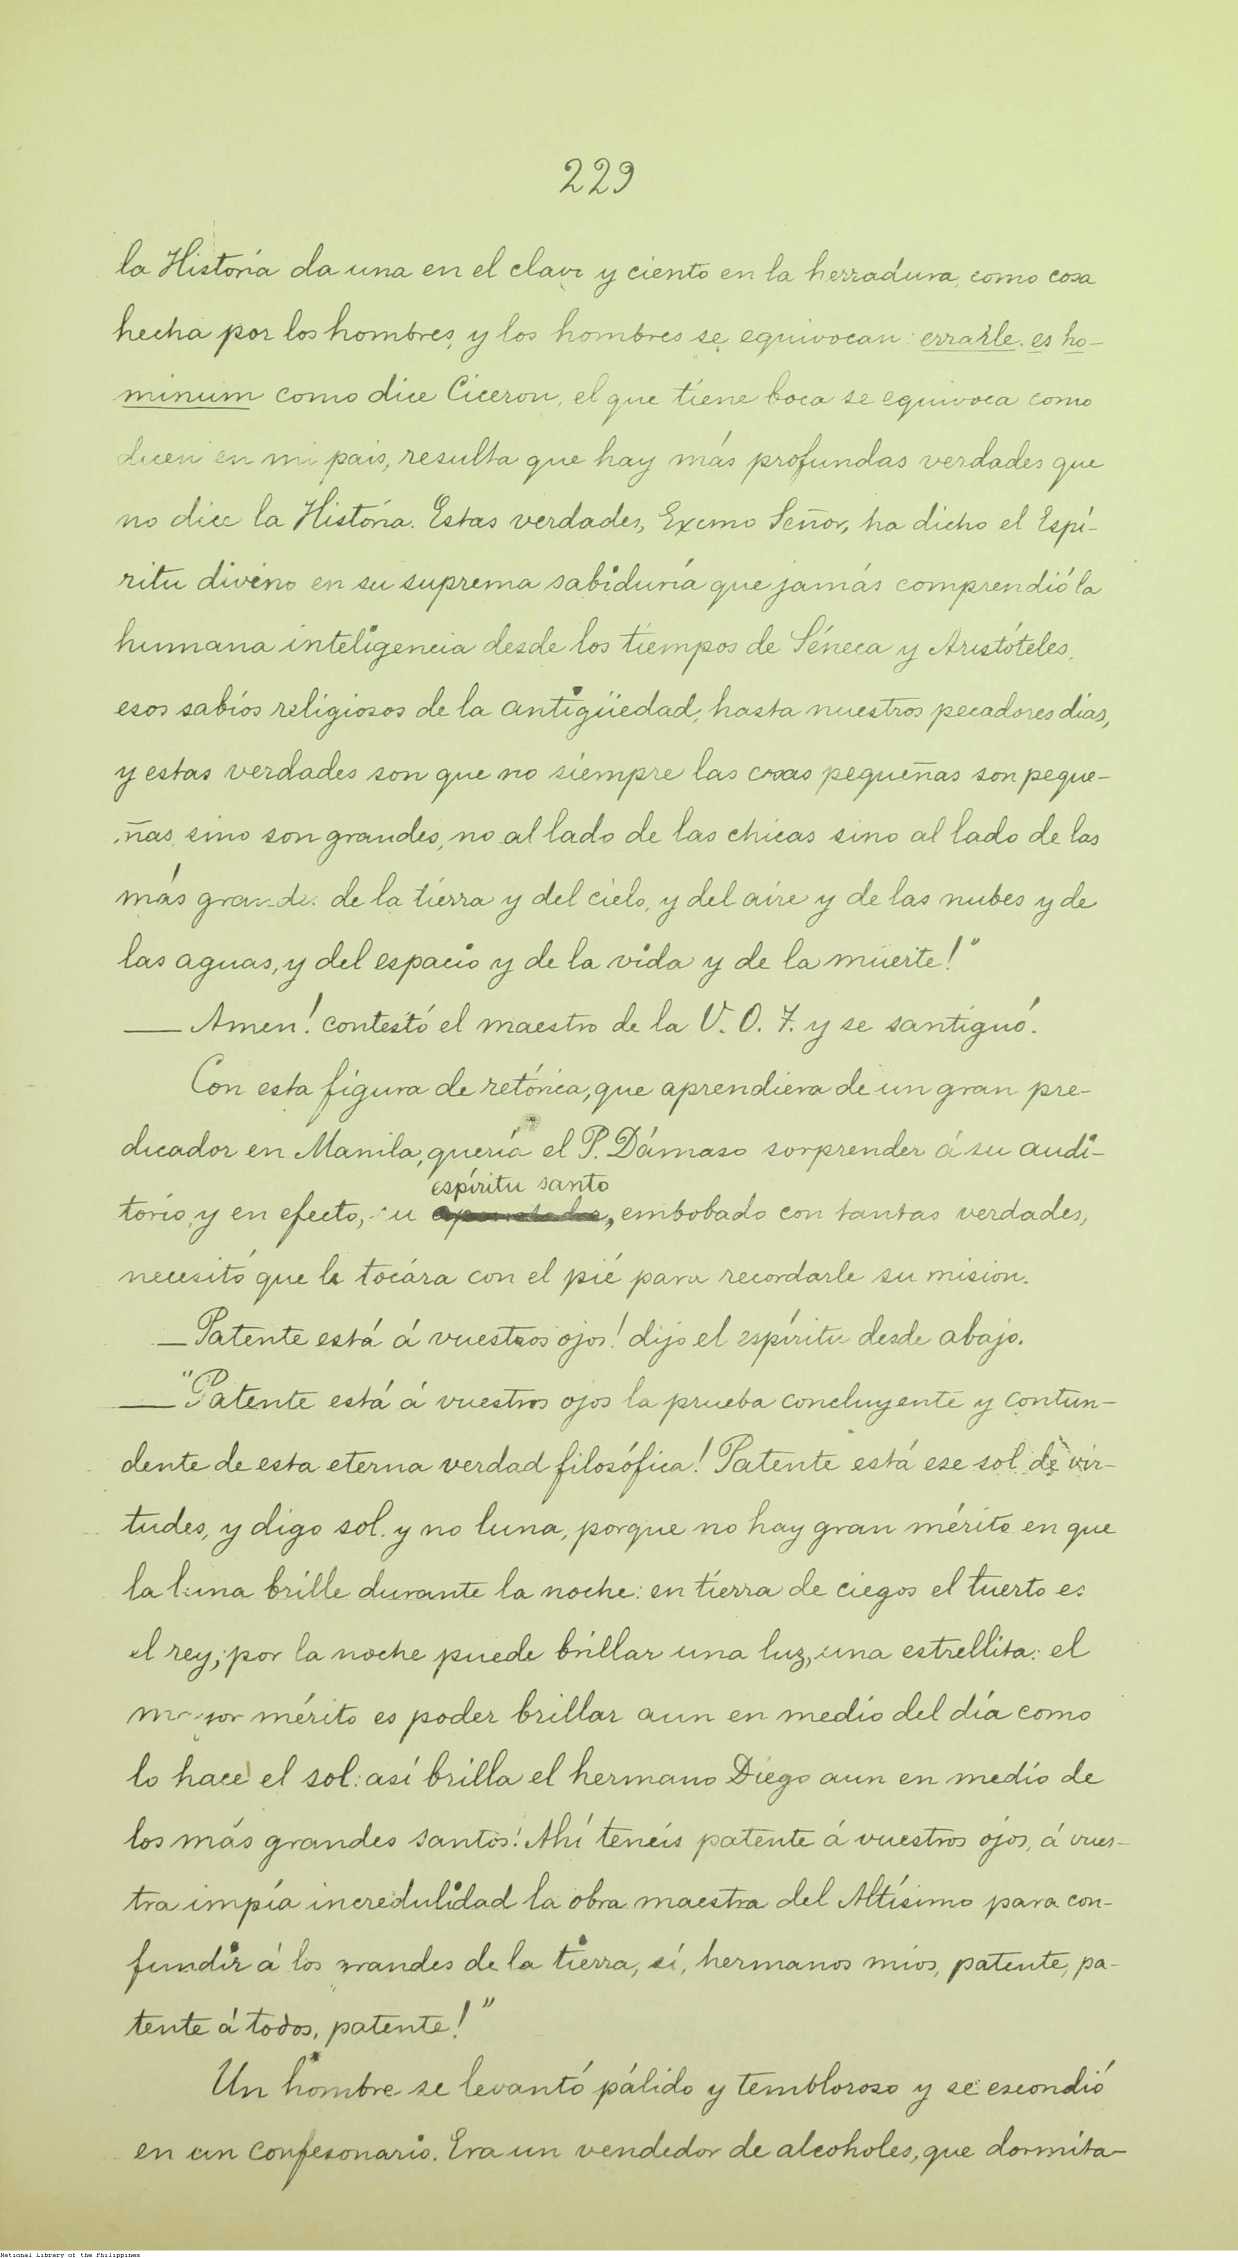 229
la Historia da una en el clavo y ciento en la herradura, como cosa
hecha por los hombres, y los hombres se equivocan: errarle es ho-
minum como dice Ciceron, el que tiene boca se equivoca como
dicen en mi pais, resulta que hay más profundas verdades que
no dice la Historia. Estas verdades, Excmo Señor, ha dicho el Espí-
ritu divino en su suprema sabiduría que jamás comprendió la
humana inteligencia desde los tiempos de Séneca y Aristóteles,
esos sabios religiosos de la antigüedad, hasta nuestros pecadores dias,
y estas verdades son que no siempre las cosas pequeñas son peque-
ñas, sino son grandes, no al lado de las chicas sino al lado de las
más grandes de la tierra y del cielo, y del aire y de las nubes y de
las aguas, y del espacio y de la vida y de la muerte!"
— Amen! contestó el maestro de la V. O. T. y se santiguó.
Con esta figura de retórica, que aprendiera de un gran pre-
dicador en Manila, quería el P. Dámaso sorprender á su audi-
espíritu santo
torio, y en efecto, su , embobado con tantas verdades,
necesitó que le tocára con el pié para recordarle su mision.
— Patente está á vuestros ojos! dijo el espíritu desde abajo.
— "Patente está á vuestros ojos la prueba concluyente y contun-
dente de esta eterna verdad filosófica! Patente está ese sol de vir-
tudes, y digo sol y no luna, porque no hay gran mérito en que
la luna brille durante la noche: en tierra de ciegos el tuerto es
el rey; por la noche puede brillar una luz, una estrellita: el
mayor mérito es poder brillar aun en medio del día como
lo hace el sol: así brilla el hermano Diego aun en medio de
los más grandes santos! Ahí teneis patente á vuestros ojos, á vues-
tra impía incredulidad la obra maestra del Altísimo para con-
fundir á los grandes de la tierra, sí, hermanos mios, patente, pa-
tente á todos, patente!"
Un hombre se levantó pálido y tembloroso y se escondió
en un confesonario. Era un vendedor de alcoholes, que dormita-
National Library of the Philippines